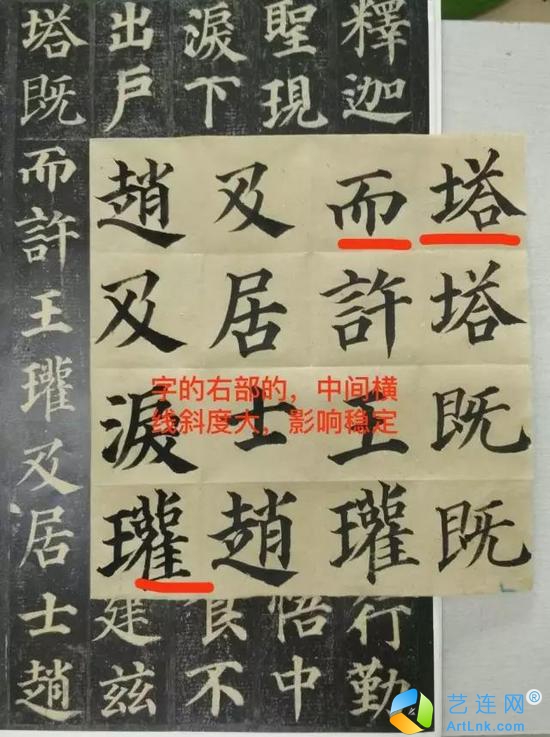 釋迦
聖現
淚下
出戶
塔既而許王瓘及居士趙
塔塔既既
而許王瓘
及居士趙
趙及淚瓘
字的右部的，中间横
线斜度大，影响稳定
行勤
悟中
不
建茲
艺连网®
ArtLnk.com